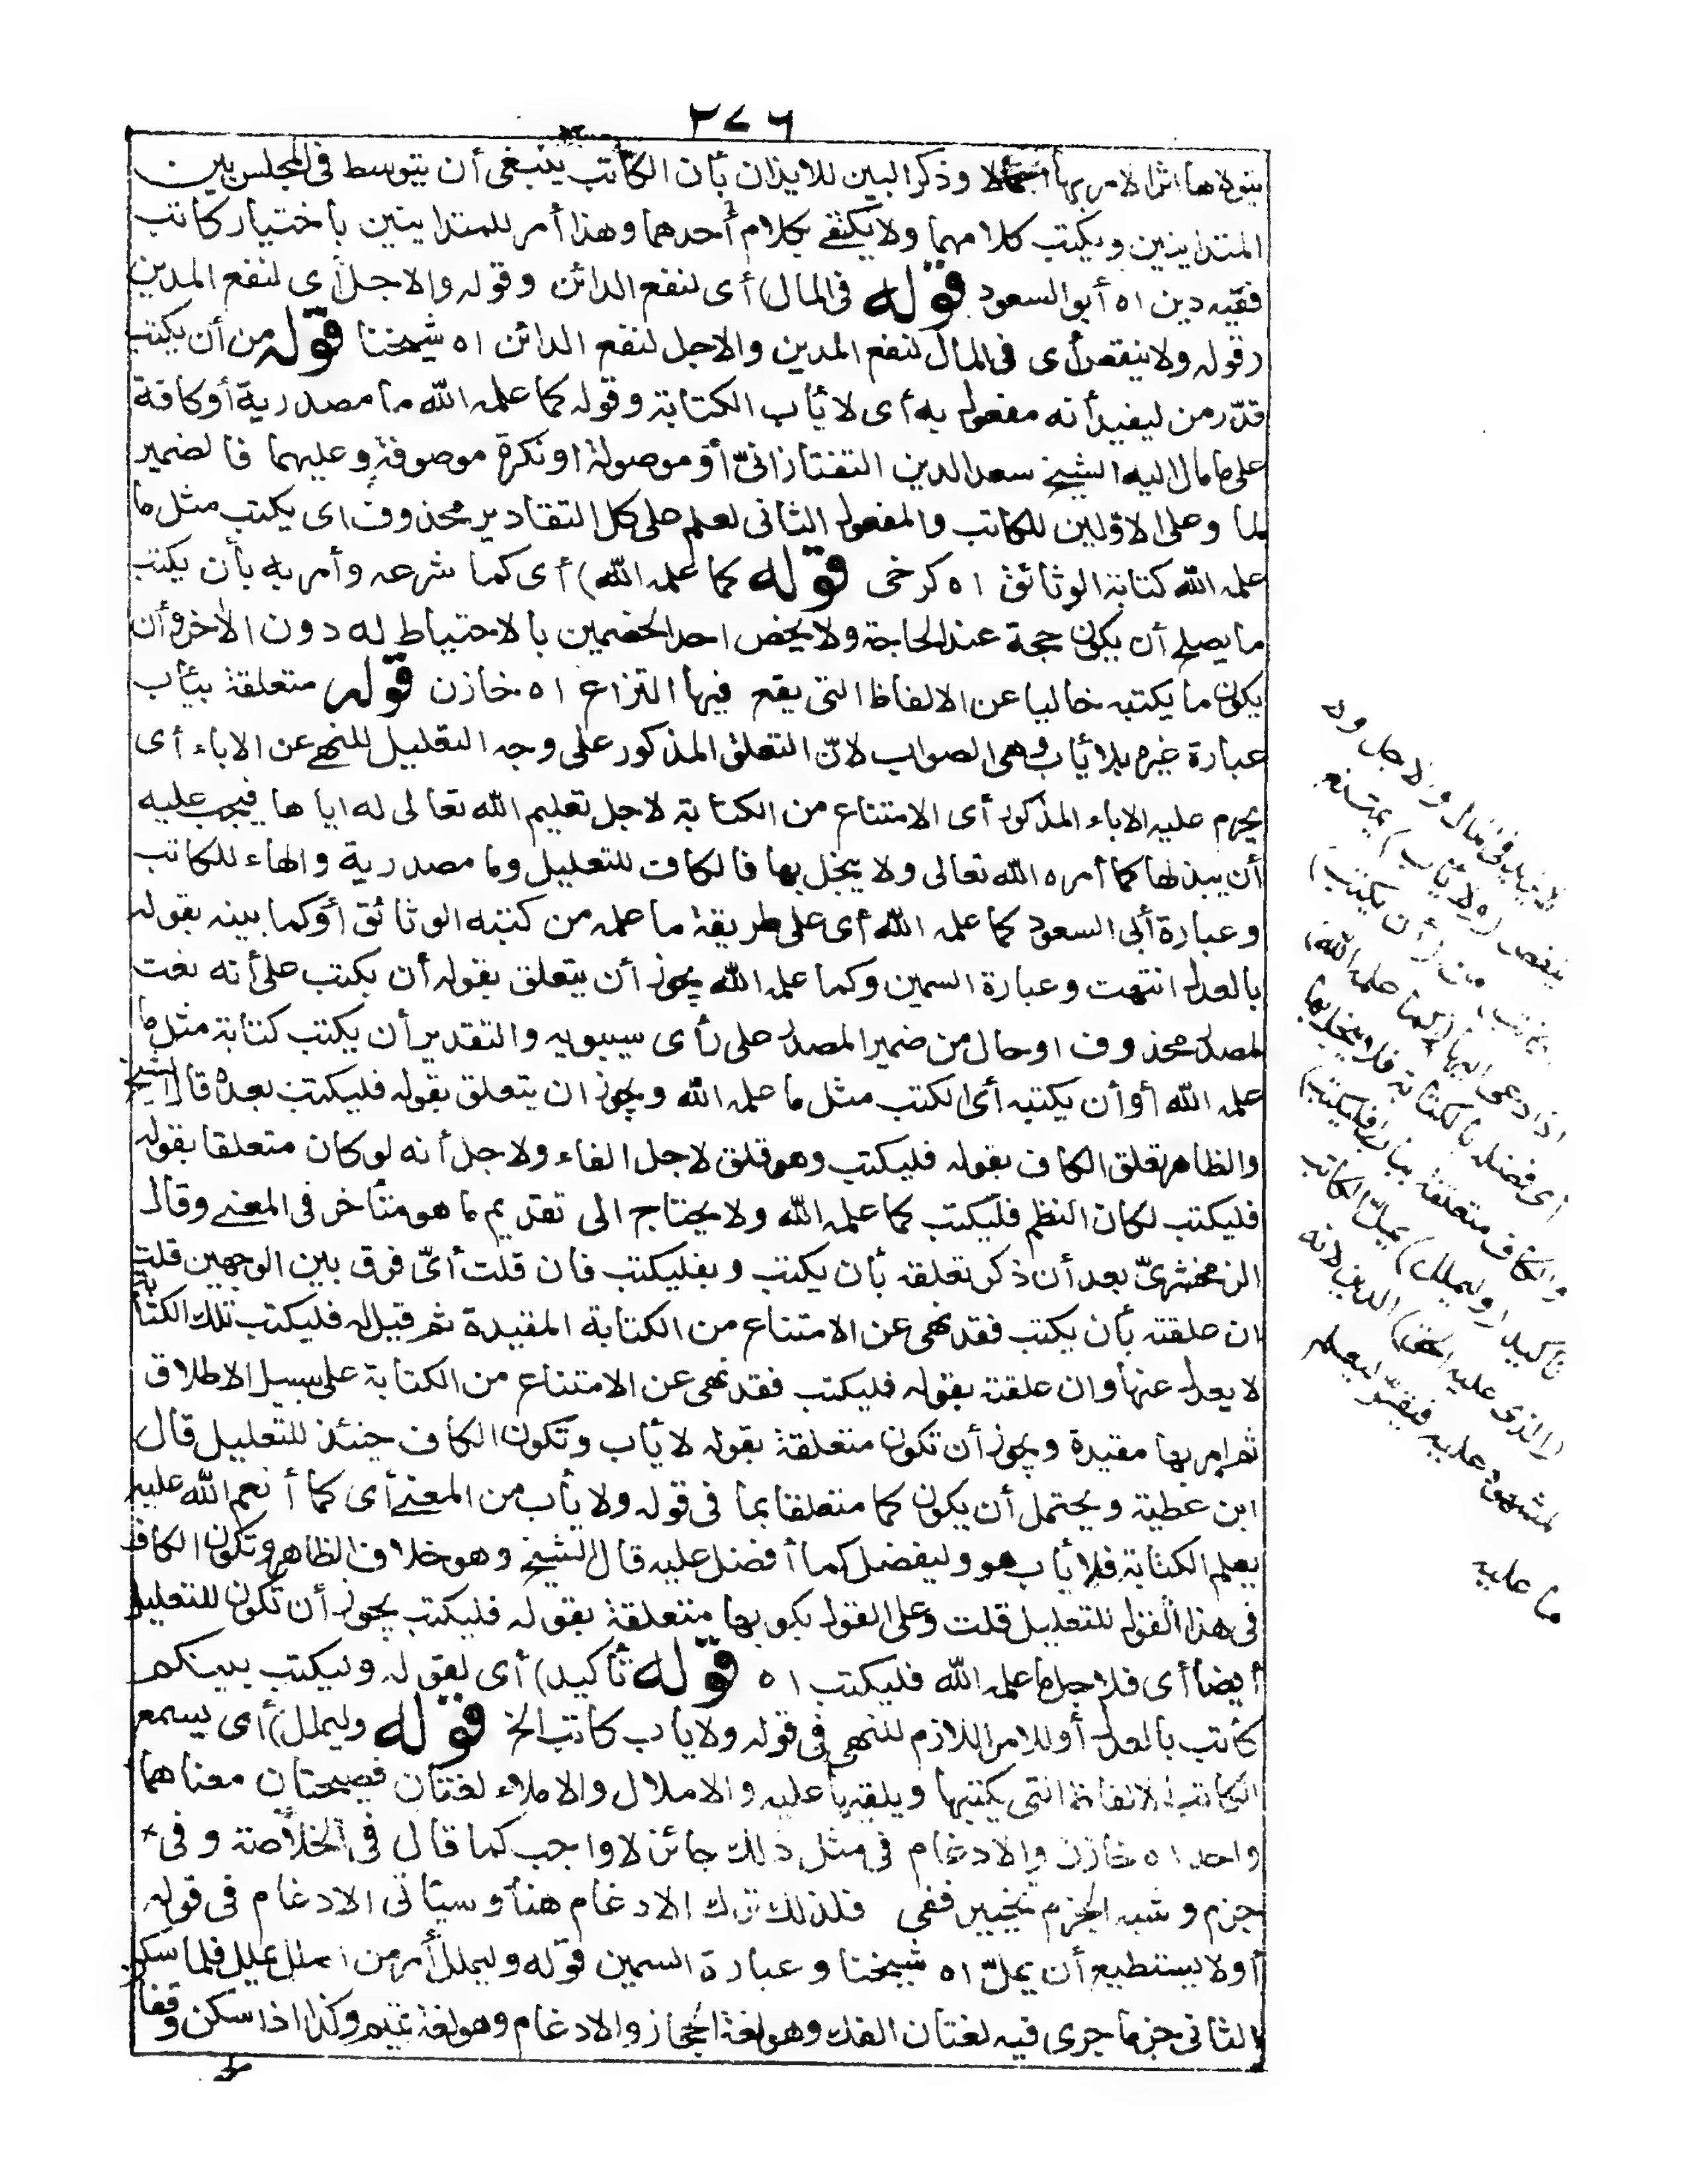 ٢٧٦
يتولاها اثر الامر بها اجمالا وذكر البين للايذان بأن الكاتب ينبغى أن يتوسط فى المجلس بين
المتداينين ويكتب كلامهما ولا يكتفى بكلام أحدهما وهذا أمر للمتداينين باختيار كاتب
فقيه دين اه أبو السعود قوله فى المال) أى لنفع الدائن وقوله والاجل أى لنفع المدين
وقوله ولا ينقص أى فى المال لنفع المدين والاجل لنفع الدائن اه شيخنا قوله من أن يكتب
قدّر من ليفيد أنه مفعول به أى لا يأب الكتابة وقوله كما علمه الله ما مصدرية أو كافة
على ما مال اليه الشيخ سعد الدين التفتازانىّ أو موصولة او نكرة موصوفة وعليهما فالضمير
لما وعلى الاوّلين للكاتب والمفعول الثانى لعلم على كل التقادير محذوف اى يكتب مثل ما
علمه الله كتابة الوثائق اه كرخى قوله كما علمه الله) أى كما شرعه وأمر به بأن يكتب
ما يصلح أن يكون حجة عند الحاجة ولا يخص احد الخصمين بالاحتياط له دون الآخر وأن
يكون ما يكتبه خاليا عن الالفاظ التى يقع فيها النزاع اه خازن قوله متعلقة بيأب
عبارة غيره بلا يأب وهى الصواب لانّ التعلق المذكور على وجه التعليل للنهى عن الاباء أى
يحرم عليه الاباء المذكور أى الامتناع من الكتابة لاجل تعليم الله تعالى له اياها فيجب عليه
أن يبذلها كما أمره الله تعالى ولا يبخل بها فالكاف للتعليل وما مصدرية والهاء للكاتب
وعبارة أبى السعود كما علمه الله أى على طريقة ما علمه من كتبه الوثائق أو كما بينه بقوله
بالعدل انتهت وعبارة السمين وكما علمه الله يجوز أن يتعلق بقوله أن يكتب على أنه نعت
لمصدر محذوف او حال من ضمير المصدر على رأى سيبويه والتقدير أن يكتب كتابة مثل ما
علمه الله أو أن يكتبه أى الكتب مثل ما علمه الله ويجوز ان يتعلق بقوله فليكتب بعده قال الشيخ
والظاهر تعلق الكاف بقوله فليكتب وهو قلق لاجل الفاء ولاجل أنه لو كان متعلقا بقوله
فليكتب لكان النظم فليكتب كما علمه الله ولا يحتاج الى تقديم ما هو متأخر فى المعنى وقال
الزمخشرىّ بعد أن ذكر تعلقه بأن يكتب وبفليكتب فان قلت أىّ فرق بين الوجهين قلت
ان علقته بأن يكتب فقد نهى عن الامتناع من الكتابة المقيدة ثم قيل له فليكتب تلك الكتابة
لا يعدل عنها وان علقته بقوله فليكتب فقد نهى عن الامتناع من الكتابة على سبيل الاطلاق
ثم امر بها مقيدة ويجوز أن تكون متعلقة بقوله لا يأب وتكون الكاف حينئذ للتعليل قال
ابن عطية ويحتمل أن يكون كما متعلقا بما فى قوله ولا يأب من المعنى أى كما أنعم الله عليه
بعلم الكتابة فلا يأب هو وليفضل كما أفضل عليه قال الشيخ وهو خلاف الظاهر وتكون الكاف
فى هذا القول للتعليل قلت وعلى القول بكونها متعلقة بقوله فليكتب يجوز أن تكون للتعليل
أيضا أى فلاجل ما علمه الله فليكتب اه قوله تأكيد) أى لقوله وليكتب بينكم
كاتب بالعدل أو للامر اللازم للنهى فى قوله ولا يأب كاتب الخ قوله وليملل) أى يسمع
الكاتب الالفاظ التى يكتبها ويلقيها عليه والاملال والاملاء لغتان فصيحتان معناهما
واحد اه خازن والادغام فى مثل ذلك جائز لا واجب كما قال فى الخلاصة وفى
جزم وشبه الجزم تخيير قفى فلذلك ترك الادغام هنا وسيأتى الادغام فى قوله
أو لا يستطيع أن يملّ اه شيخنا وعبارة السمين قوله وليملل أمر من أملل يملل فلما سكن
الثانى جزما جرى فيه لغتان الفك وهو لغة الحجاز والادغام وهو لغة تميم وكذا اذا سكن وقفا
فى المال والاجل ولا
ينقص (ولا يأب) يمتنع
كاتب من (أن يكتب)
اذا دعى اليها (كما علمه الله)
أى فضله بالكتابة فلا يبخل بها
والكاف متعلقة بيأب (فليكتب)
تأكيد (وليملل) يملّ الكاتب
(الذى عليه الحق) الدين لانه
المشهود عليه فيقرّ ليعلم
ما عليه